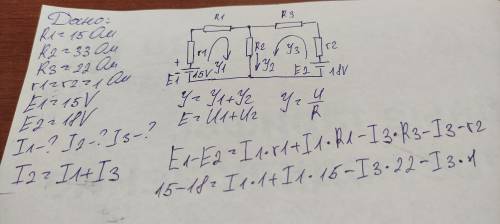 Дано:
R1=15 Ом
R2=33 Ом
R3=22 Ом
r1=r2=1 Ом
E1=15V
E2=18V
I1-? I2-? I3-?
I2=I1+I3
R1
R3
r1
R2
r2
У1
У2
У3
+
E1
15V
E2
18V
У=У1+У2
E=U1+U2
У=U/R
E1-E2=I1·r1+I1·R1-I3·R3-I3-r2
15-18=I1·1+I1·15-I3·22-I3·1